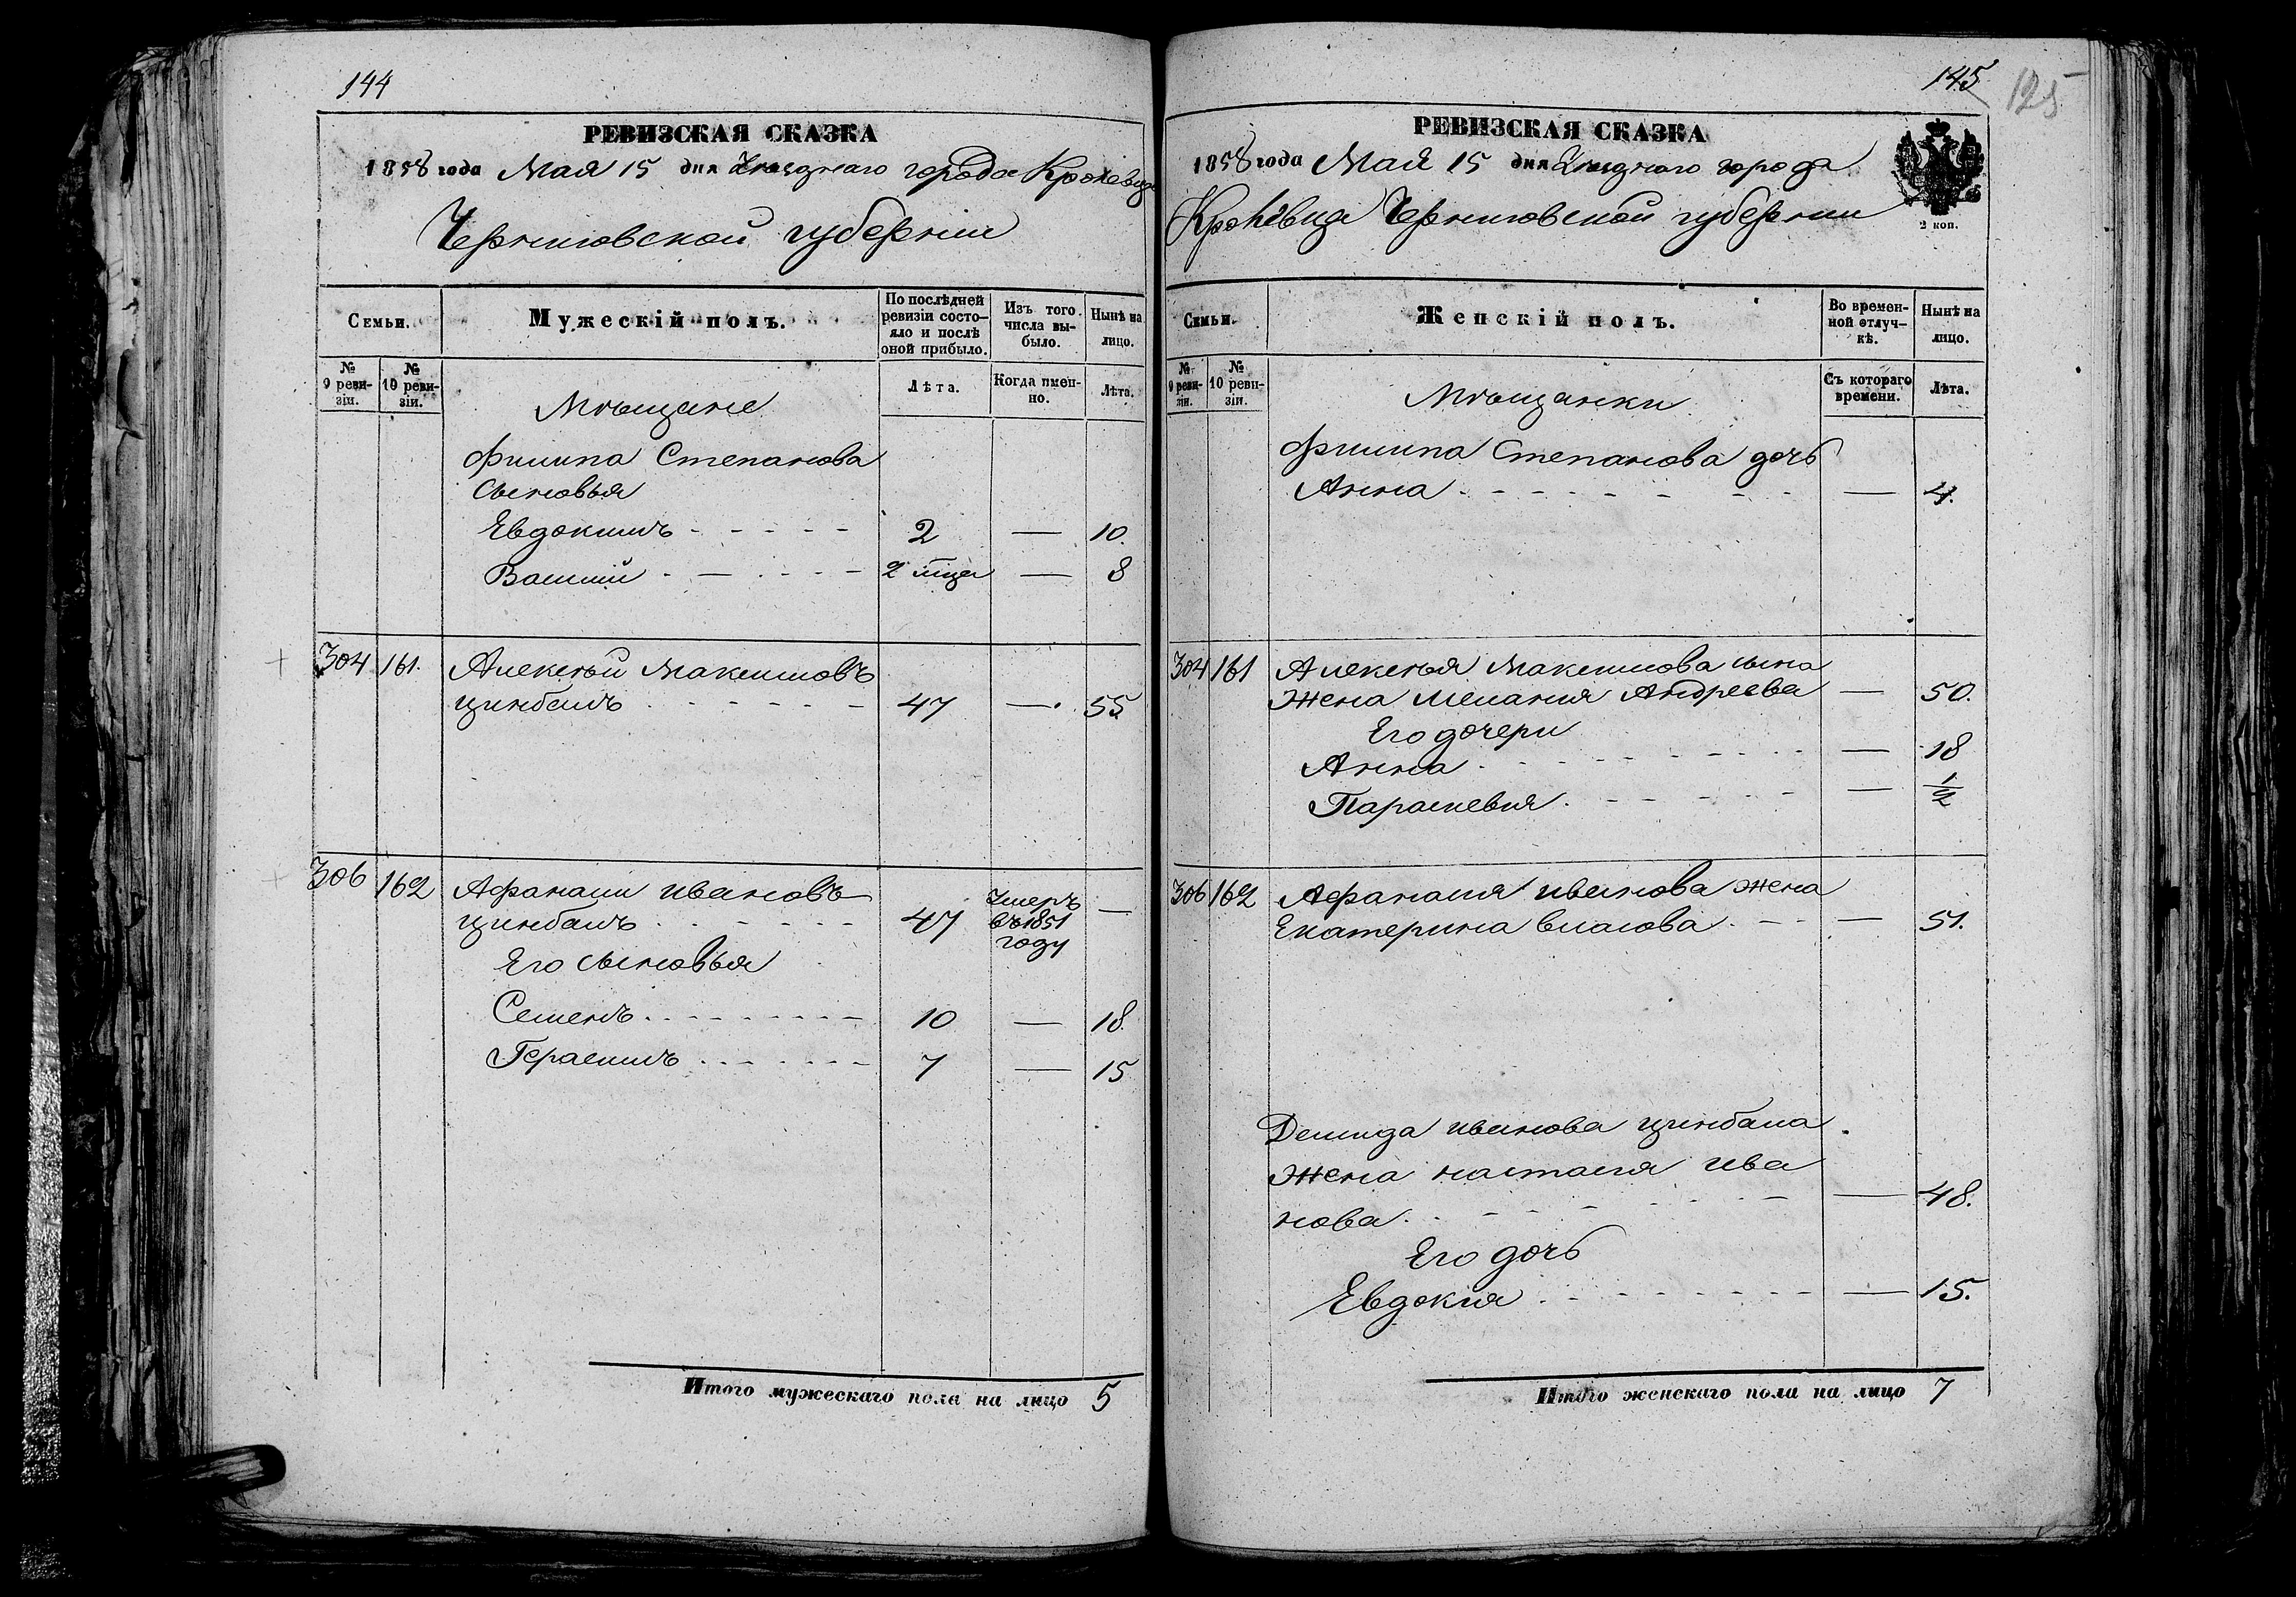 144
РЕВИЗСКАЯ СКАЗКА
1858 года Мая 15 дня Уезднаго города Кролевца
Черниговской губернии
Семьи.
Мужескій полъ.
По послѣдней ревизіи состо-
яло и послѣ
оной прибыло.
Изъ того
числа вы-
было.
Нынѣ на
лицо.
№
9 реви-
зіи.
№
10 реви-
зіи.
Лѣта.
Когда имен-
но.
Лѣта.
Мѣщане
Филипа Степанова
сыновья
Евдокимъ - - - - - 2 — 10.
Васили - — - - - 2 мца — 8
304 161. Алексѣй Максимовъ
цинбалъ - - - - - - 47 — 55
306 162 Афанаси ивановъ
цинбалъ - - - - - - 47 Умеръ въ 1851 году —
Его сыновья
Семенъ - - - - - - - 10 — 18.
Герасимъ - - - - - - 7 — 15
Итого мужескаго пола на лицо 5
145
125
РЕВИЗСКАЯ СКАЗКА
1858 года Мая 15 дня Уезднаго города
Кролевца Черниговской губернии
2 коп.
Семьи.
Женскій полъ.
Во времен-
ной отлуч-
кѣ.
Нынѣ на
лицо.
№
9 реви-
зіи.
№
10 реви-
зіи.
Съ котораго
времени.
Лѣта.
Мѣщанки
Филипа Степанова дочь
Анна - - - - - - - — 4.
304 161 Алексѣя Максимова сына
жена Мелания Андреева — 50.
Его дочери
Анна - - - - - - - — 18
Параскевия - - - - - — 1/2
306 162 Афанасия иванова жена
Екатерина власова - - — 51.
Демида иванова цинбала
жена настасия ива
нова - - - - - - — 48.
Его дочь
Евдокия - - - - - - - — 15.
Итого женскаго пола на лицо 7